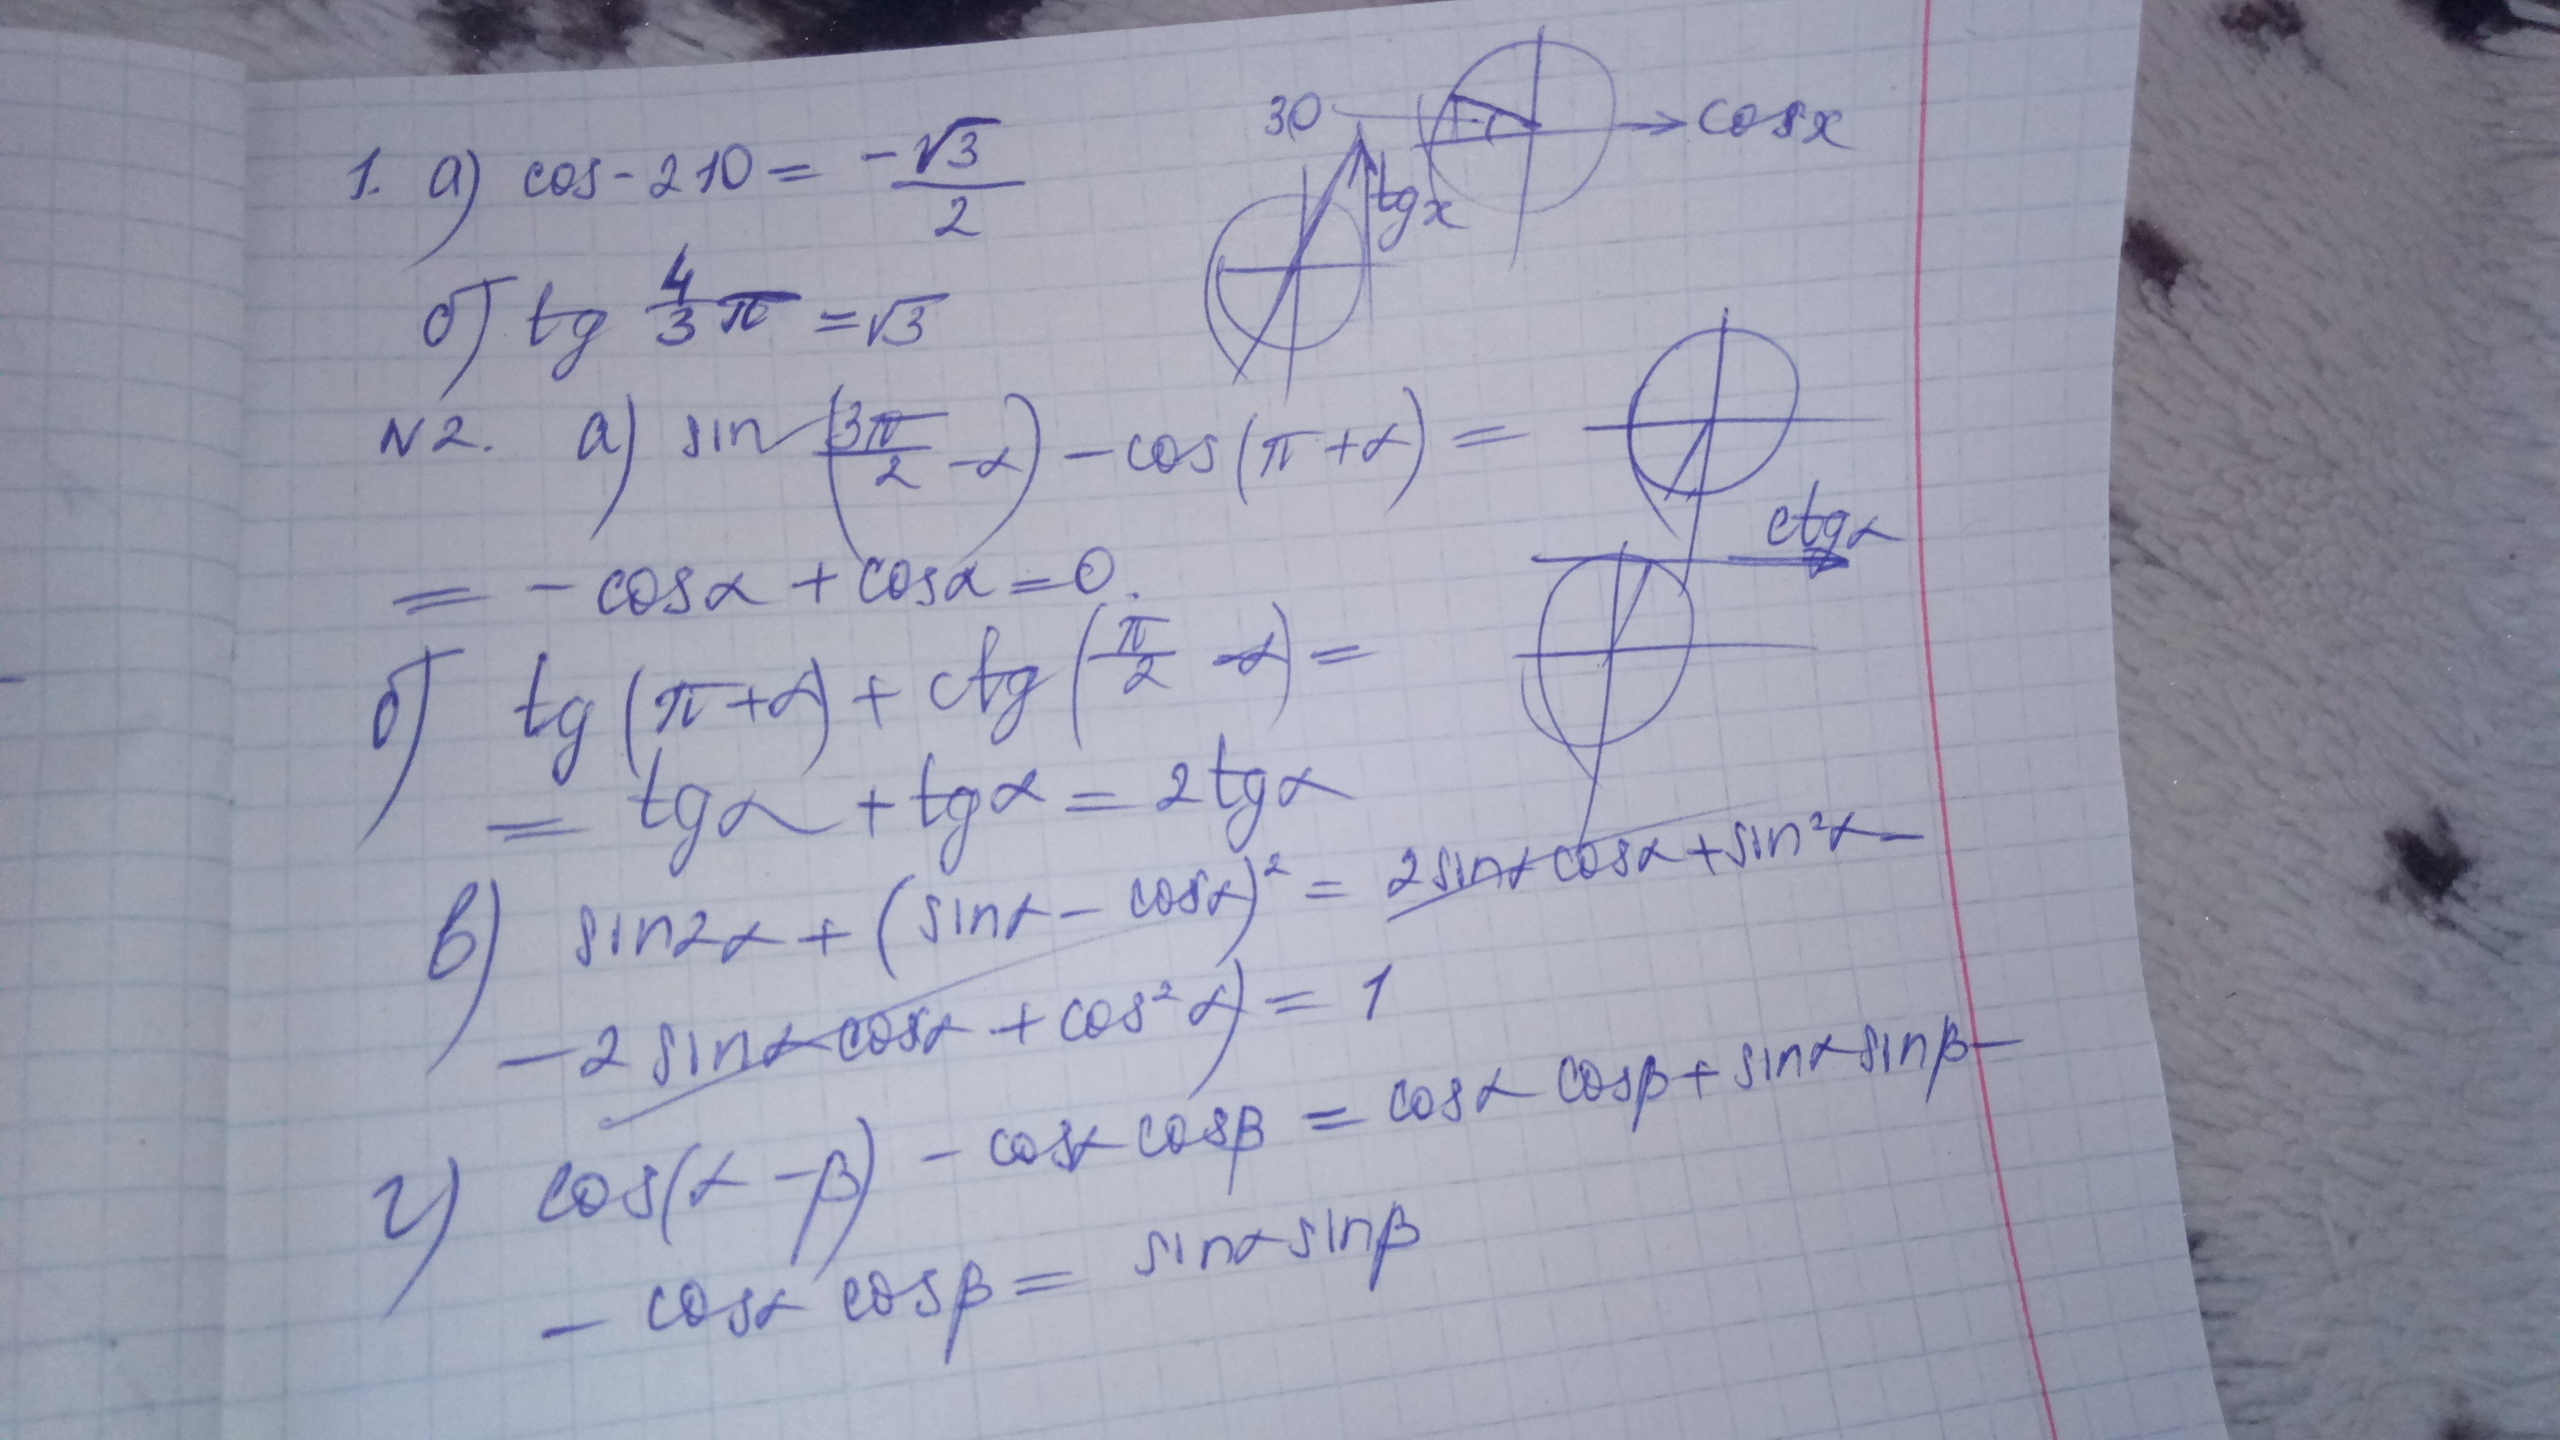 30 → cosx
1. а) cos-210 = -√3/2
tgx
б) tg 4/3 π = √3
N2. а) sin(3π/2 -α) - cos(π+α) =
= - cosα + cosα = 0.
ctgα
б) tg(π+α) + ctg(π/2 -α) =
= tgα + tgα = 2tgα
в) sin2α + (sinα - cosα)² = 2sinα cosα + sin²α -
- 2 sinα cosα + cos²α) = 1
г) cos(α - β) - cosα cosβ = cosα cosβ + sinα sinβ -
- cosα cosβ = sinα sinβ